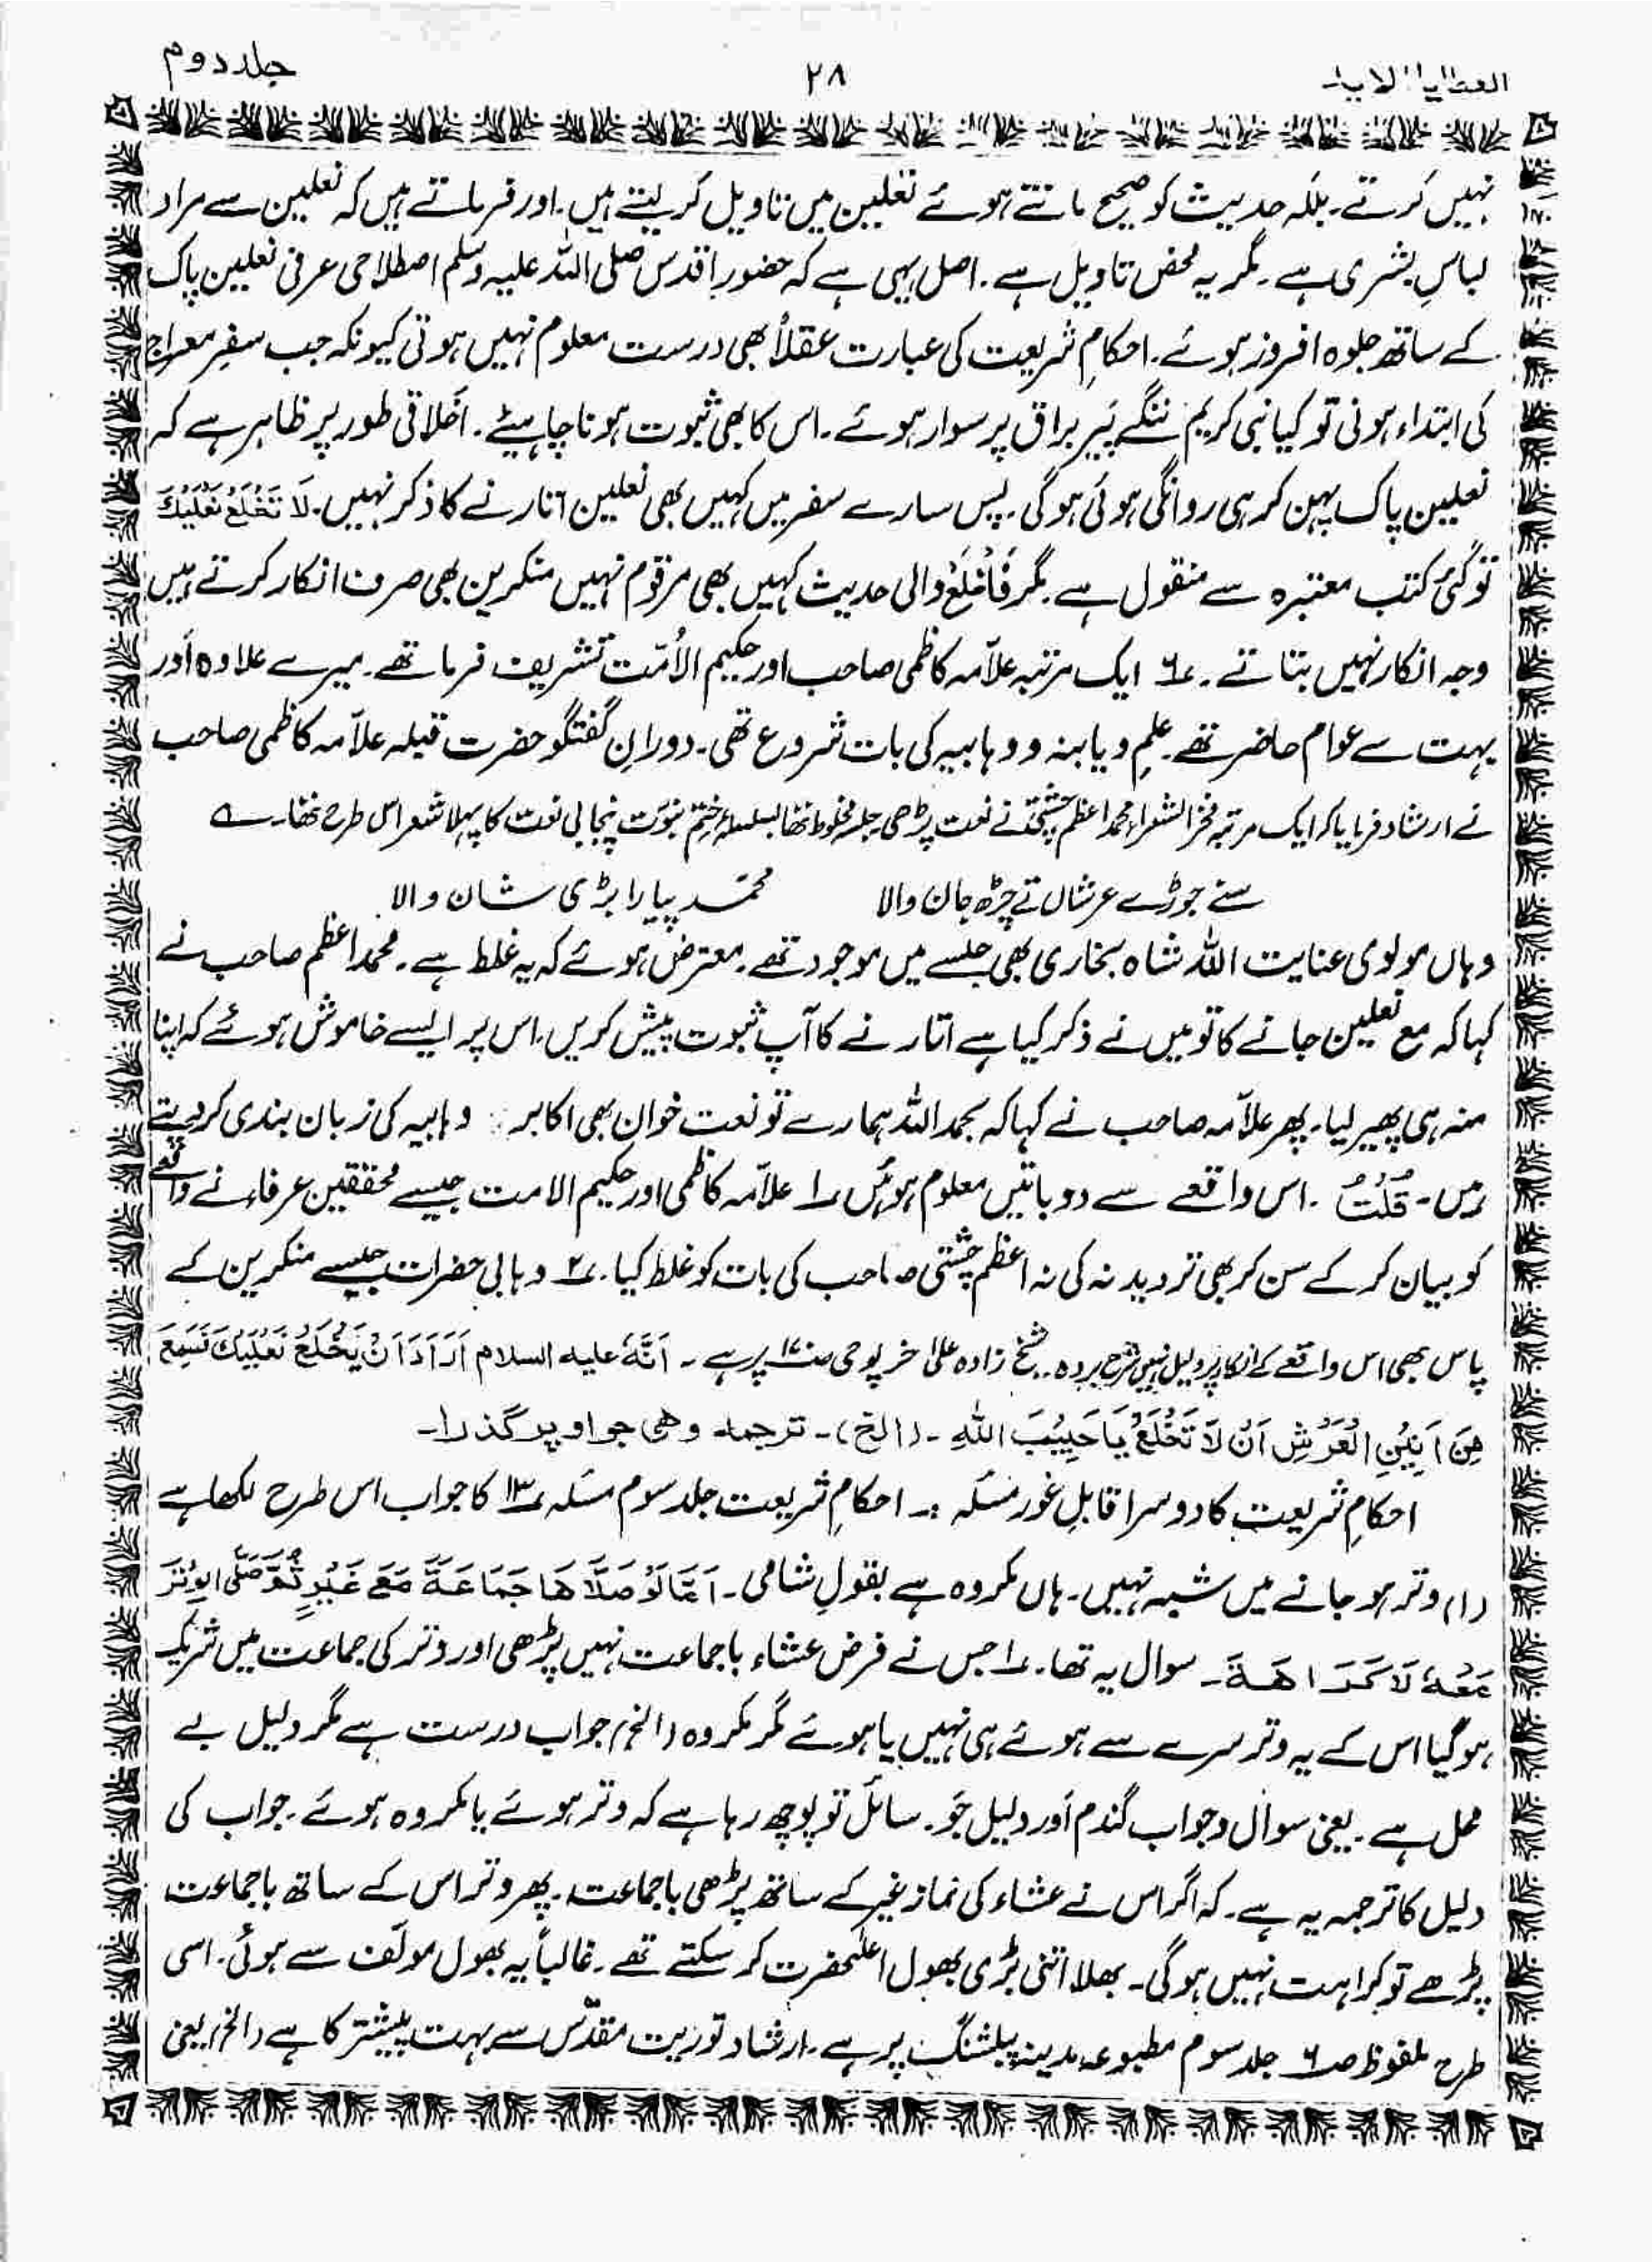 العطایا الاحمدیہ ۲۸ جلد دوم
نہیں کرتے۔ بلکہ حدیث کو صحیح مانتے ہوئے نعلین میں تاویل کر لیتے ہیں۔ اور فرماتے ہیں کہ نعلین سے مراد
لباسِ بشری ہے۔ مگر یہ محض تاویل ہے۔ اصل یہی ہے کہ حضورِ اقدس صلی اللہ علیہ وسلم اصطلاحی عرفی نعلین پاک
کے ساتھ جلوہ افروز ہوئے۔ احکامِ شریعت کی عبارت عقلاً بھی درست معلوم نہیں ہوتی کیونکہ جب سفرِ معراج
کی ابتداء ہوئی تو کیا نبی کریم ننگے پَیر براق پر سوار ہوئے۔ اس کا بھی ثبوت ہونا چاہیئے۔ اخلاقی طور پر ظاہر ہے کہ
نعلین پاک پہن کر ہی روانگی ہوئی ہوگی۔ پس سارے سفر میں کہیں بھی نعلین اتارنے کا ذکر نہیں۔ لَا تَخْلَعْ نَعْلَیْكَ
تو کئی کتب معتبرہ سے منقول ہے۔ مگر فَاخْلَعْ والی حدیث کہیں بھی مرقوم نہیں منکرین بھی صرف انکار کرتے ہیں
وجہ انکار نہیں بتاتے۔ ۶؎ ایک مرتبہ علاّمہ کاظمی صاحب اور حکیم الاُمّت تشریف فرما تھے۔ میرے علاوہ اَور
بہت سے عوام حاضر تھے۔ علمِ دیابنہ و وہابیہ کی بات شروع تھی۔ دورانِ گفتگو حضرت قبلہ علاّمہ کاظمی صاحب
نے ارشاد فرمایا کہ ایک مرتبہ فخر الشعراء محمد اعظم چشتی نے نعت پڑھی جلسہ مخلوط تھا بسلسلہ ختمِ نبوّت پنجابی نعت کا پہلا شعر اس طرح تھا۔ ؎
سنے جوڑے عرشاں تے چڑھ جان والا محمّد پیارا بڑی شان والا
وہاں مولوی عنایت اللہ شاہ بخاری بھی جلسے میں موجود تھے۔ معترض ہوئے کہ یہ غلط ہے۔ محمد اعظم صاحب نے
کہا کہ مع نعلین جانے کا تو میں نے ذکر کیا ہے اتارنے کا آپ ثبوت پیش کریں۔ اس پر ایسے خاموش ہوئے کہ اپنا
منہ ہی پھیر لیا۔ پھر علاّمہ صاحب نے کہا کہ بحمد اللہ ہمارے تو نعت خوان بھی اکابر وہابیہ کی زبان بندی کر دیتے
ہیں۔ قُلْتُ۔ اس واقعے سے دو باتیں معلوم ہوئیں ۱؎ علاّمہ کاظمی اور حکیم الامت جیسے محققین عرفاء نے واقعے
کو بیان کر کے سن کر بھی تردید نہ کی نہ اعظم چشتی صاحب کی بات کو غلط کیا۔ ۲؎ وہابی حضرات جیسے منکرین کے
پاس بھی اس واقعے کے انکار پر دلیل نہیں شرح بردہ۔ شیخ زادہ علیٰ خرپوطی پر ہے۔ اَنَّہٗ علیہ السلام اَرَادَ اَنْ یَخْلَعَ نَعْلَیْكَ نَسَمِعَ
مِنَ اَنِیْنِ الْعَرْشِ اَنْ لَا تَخْلَعْ یَا حَبِیْبَ اللّٰہِ۔ (الخ)۔ ترجمہ وہی جو اوپر گذرا۔
احکامِ شریعت کا دوسرا قابلِ غور مسئلہ :۔ احکامِ شریعت جلد سوم مسئلہ ۱۳؎ کا جواب اس طرح لکھا ہے
(۱) وتر ہو جانے میں شبہ نہیں۔ ہاں مکروہ ہے بقولِ شامی۔ اَمَّا لَوْ صَلَّاھَا جَمَاعَةً مَعَ غَیْرِہٖ ثُمَّ صَلَّی الْوِتْرَ
مَعَہٗ لَا کَرَاھَةَ۔ سوال یہ تھا۔ ۱؎ جس نے فرض عشاء باجماعت نہیں پڑھی اور وتر کی جماعت میں شریک
ہو گیا اس کے یہ وتر سرے سے ہوئے ہی نہیں یا ہوئے مگر مکروہ (الخ) جواب درست ہے مگر دلیل بے
محل ہے۔ یعنی سوال و جواب گندم اَور دلیل جَو۔ سائل تو پوچھ رہا ہے کہ وتر ہوئے یا مکروہ ہوئے۔ جواب کی
دلیل کا ترجمہ یہ ہے۔ کہ اگر اس نے عشاء کی نماز غیر کے ساتھ پڑھی باجماعت۔ پھر وتر اس کے ساتھ باجماعت
پڑھے تو کراہت نہیں ہوگی۔ بھلا اتنی بڑی بھول اعلٰحضرت کر سکتے تھے۔ غالباً یہ بھول مولّف سے ہوئی۔ اسی
طرح ملفوظ صـ۶ جلد سوم مطبوعہ مدینہ پبلشنگ پر ہے۔ ارشاد توریت مقدّس سے بہت پیشتر کا ہے (الخ) یعنی